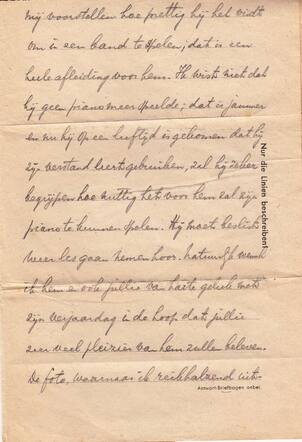 mij voorstellen hoe prettig hij het vindt
om in een band te spelen; dat is een
heele afleiding voor hem. Ik wist niet dat
hij geen piano meer speelde; dat is jammer
en nu hij op een leeftijd is gekomen dat hij
zijn verstand leert gebruiken, zal hij zeker
begrijpen hoe nuttig het voor hem zal zijn
piano te kunnen spelen. Hij moet beslist
weer les gaan nemen hoor. Natuurlijk wensch
ik hem en ook jullie van harte geluk met
zijn verjaardag in de hoop dat jullie
zeer veel pleizier van hem zullen beleven.
De foto, waarnaar ik reikhalzend uit-
Nur die Linien beschreiben!
Antwort-Briefbogen anbei.